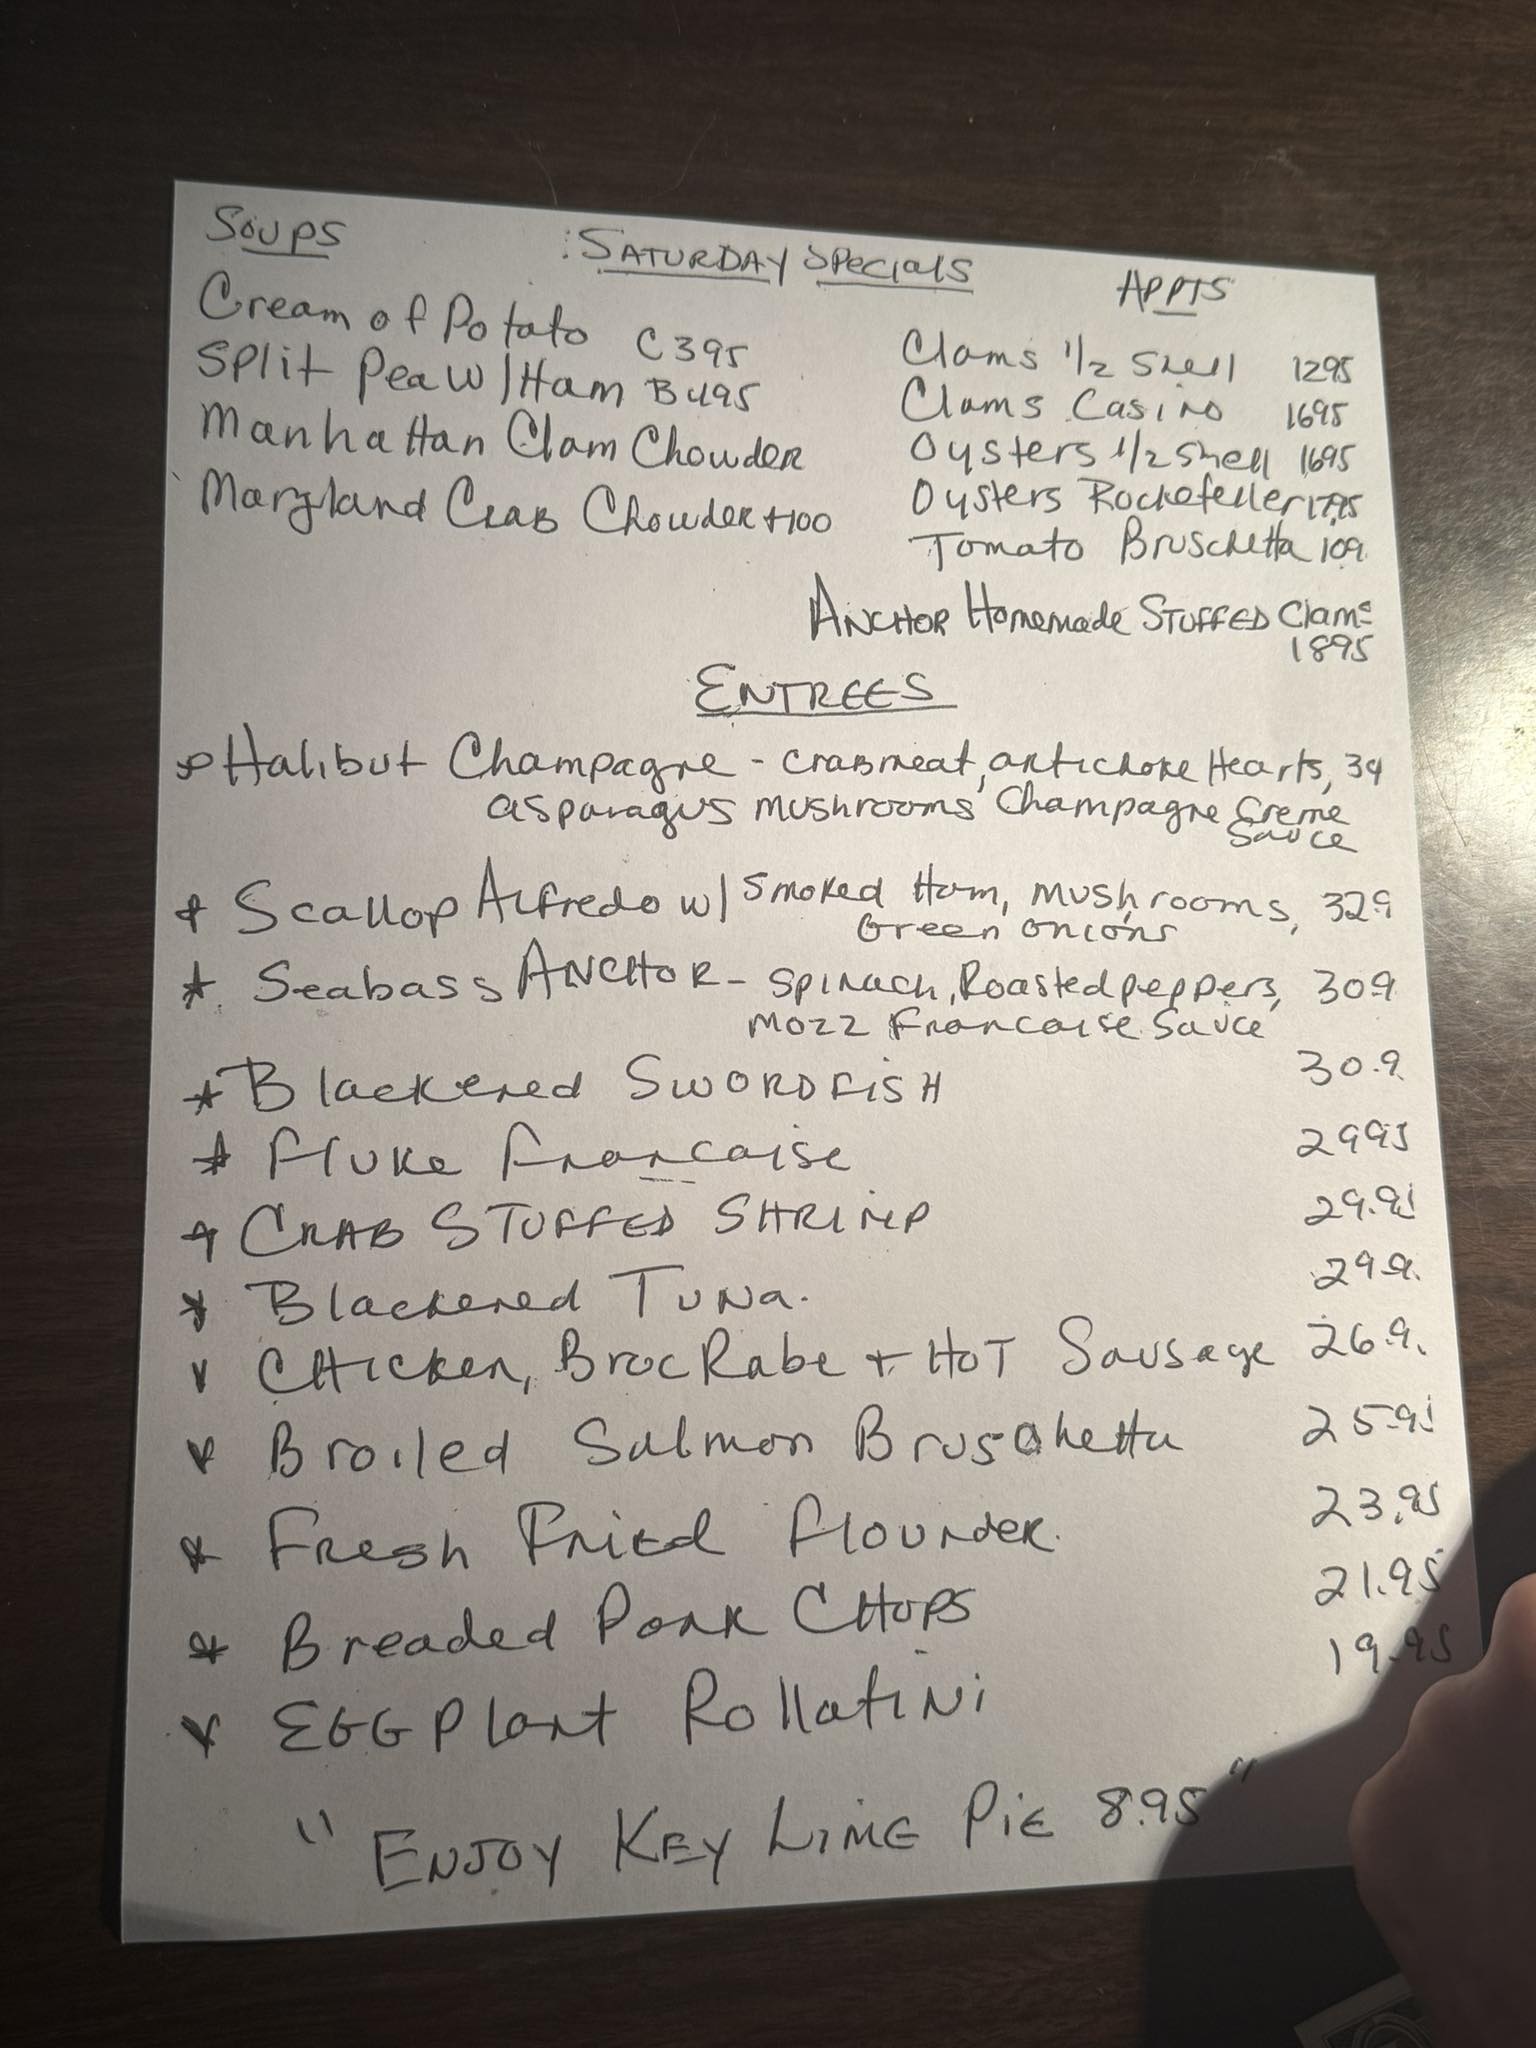 SOUPS
Cream of Potato C 395
Split Pea w/Ham B 495
Manhattan Clam Chowder
Maryland CRAB Chowder +100
: SATURDAY SPecials
APPTS
Clams 1/2 Shell 1295
Clams Casino 1695
Oysters 1/2 Shell 1695
Oysters Rockefeller 1795
Tomato Bruschetta 109
ANCHOR Homemade STUFFED Clams
1895
ENTREES
Halibut Champagne - CRABmeat, artichoke Hearts, 34
asparagus mushrooms Champagne Creme
Sauce
Scallop Alfredo w/ Smoked Ham, mushrooms, 329
Green onions
* Seabass ANCHOR - Spinach, Roasted peppers, 309
mozz Francaise Sauce
* Blackened SWORDFISH 30.9
* Fluke Francaise 2995
* CRAB STUFFED SHRIMP 29.95
* Blackened TUNa. 29.9.
CHicken, Broc Rabe + HOT Sausage 26.9.
Broiled Salmon Bruschetta 25.95
* Fresh Fried flounder. 23.95
* Breaded Pork CHOPS 21.95
EGGPlant RollatiNi 19.95
" ENJOY KEY LIME PiE 8.95 "